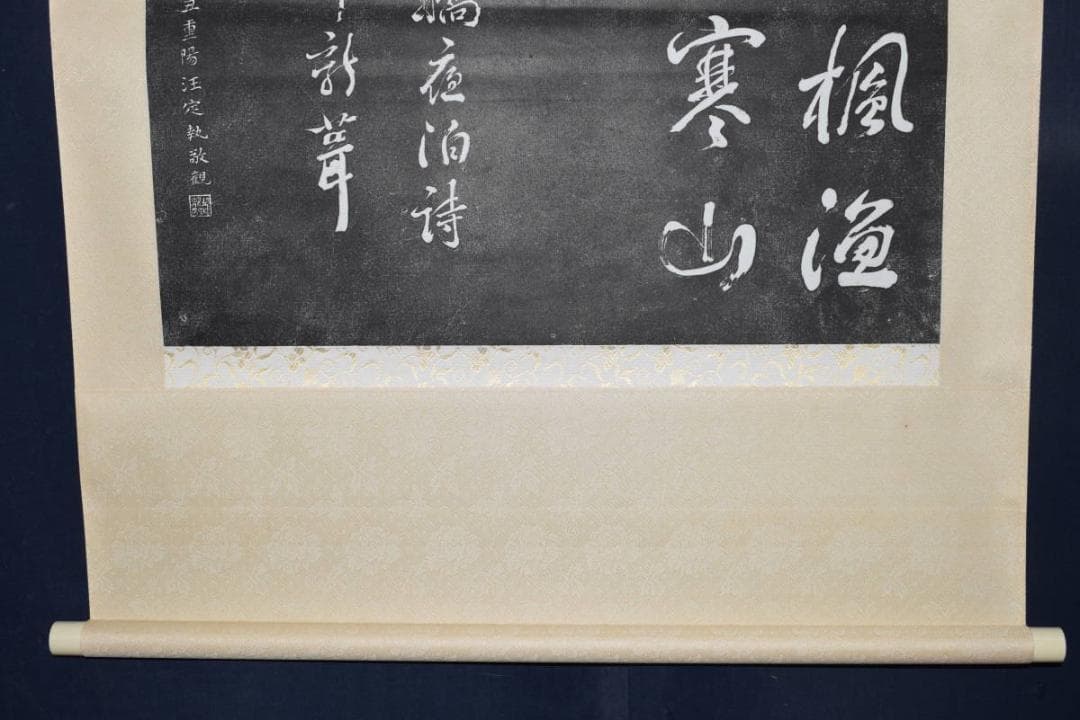 楓漁
寒山
橋夜泊詩
新葺
丑重陽汪定執敬觀